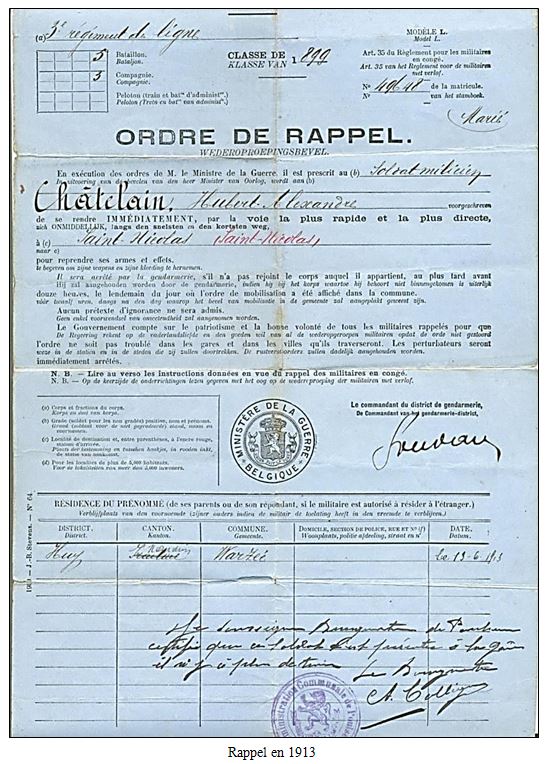 (a) 3e régiment de ligne
MODÈLE L.
Model L.
5 Bataillon.
Bataljon.
3 Compagnie.
Compagnie.
Peloton (train et bat" d'administ".)
Peloton (Trein en bat" van administ".)
CLASSE DE
KLASSE VAN
1899
Art. 35 du Règlement pour les militaires
en congé.
Art. 35 van het Reglement voor de militairen
met verlof.
No 49648 de la matricule.
No van het stamboek.
Marié
ORDRE DE RAPPEL.
WEDEROPROEPINGSBEVEL.
En exécution des ordres de M. le Ministre de la Guerre, il est prescrit au (b) Soldat milicien
In uitvoering van de bevelen van den heer Minister van Oorlog, wordt aan (b)
Châtelain, Hubert Alexandre voorgeschreven
de se rendre IMMÉDIATEMENT, par la voie la plus rapide et la plus directe,
zich ONMIDDELLIJK, langs den snelsten en den kortsten weg,
à (c) Saint Nicolas (Saint-Nicolas)
naar c)
pour reprendre ses armes et effets.
te begeven om zijne wapens en zijne kleeding te hernemen.
Il sera arrêté par la gendarmerie, s'il n'a pas rejoint le corps auquel il appartient, au plus tard avant
Hij zal aangehouden worden door de gendarmerie, indien hij bij het korps waartoe hij behoort niet binnengekomen is uiterlijk
douze heures, le lendemain du jour où l'ordre de mobilisation a été affiché dans la commune.
vóór twaalf uren, daags na den dag waarop het bevel van mobilisatie in de gemeente zal aangeplakt geweest zijn.
Aucun prétexte d'ignorance ne sera admis.
Geen enkel voorwendsel van onwetendheid zal aangenomen worden.
Le Gouvernement compte sur le patriotisme et la bonne volonté de tous les militaires rappelés pour que
De Regeering rekent op de vaderlandsliefde en den goeden wil van al de wederopgeroepen militairen opdat de orde niet gestoord
l'ordre ne soit pas troublé dans les gares et dans les villes qu'ils traverseront. Les perturbateurs seront
weze in de statiën en in de steden die zij zullen doortrekken. De rustverstoorders zullen dadelijk aangehouden worden.
immédiatement arrêtés.
N. B. — Lire au verso les instructions données en vue du rappel des militaires en congé.
N. B. — Op de keerzijde de onderrichtingen lezen gegeven met het oog op de wederoproeping der militairen met verlof.
(a) Corps et fractions du corps.
Korps en deel van het korps.
(b) Grade (soldat pour les non gradés) position, nom et prénoms.
Graad (soldaat voor de niet gegradeerde) stand, naam en voornamen.
(c) Localité de destination et, entre parenthèses, à l'encre rouge, station d'arrivée.
Plaats der bestemming en tusschen haakjes, in rooden inkt, de statie van aankomst.
(d) Pour les localités de plus de 5,000 habitants.
Voor de lokaliteiten van meer dan 5,000 inwoners.
MINISTÈRE DE LA GUERRE
BELGIQUE
Le commandant du district de gendarmerie,
De Commandant van het gendarmerie-district,
1903 — J.-B. Stevens. — No 64.
RÉSIDENCE DU PRÉNOMMÉ (de ses parents ou de son répondant, si le militaire est autorisé à résider à l'étranger.)
Verblijfplaats van den voornoemde (zijner ouders indien de militair de toelating heeft in den vreemde te verblijven.)
DISTRICT. District.
CANTON. Kanton.
COMMUNE. Gemeente.
DOMICILE, SECTION DE POLICE, RUE ET No (d)
Woonplaats, politie afdeeling, straat en no
DATE. Datum.
Huy Nandrin Warzée Le 13-6-1913
Je soussigné Bourgmestre de
certifie que ce soldat s'est présenté à la gare
il n'y a plus de train
Le Bourgmestre
A. Collign
Administration Communale de
Rappel en 1913